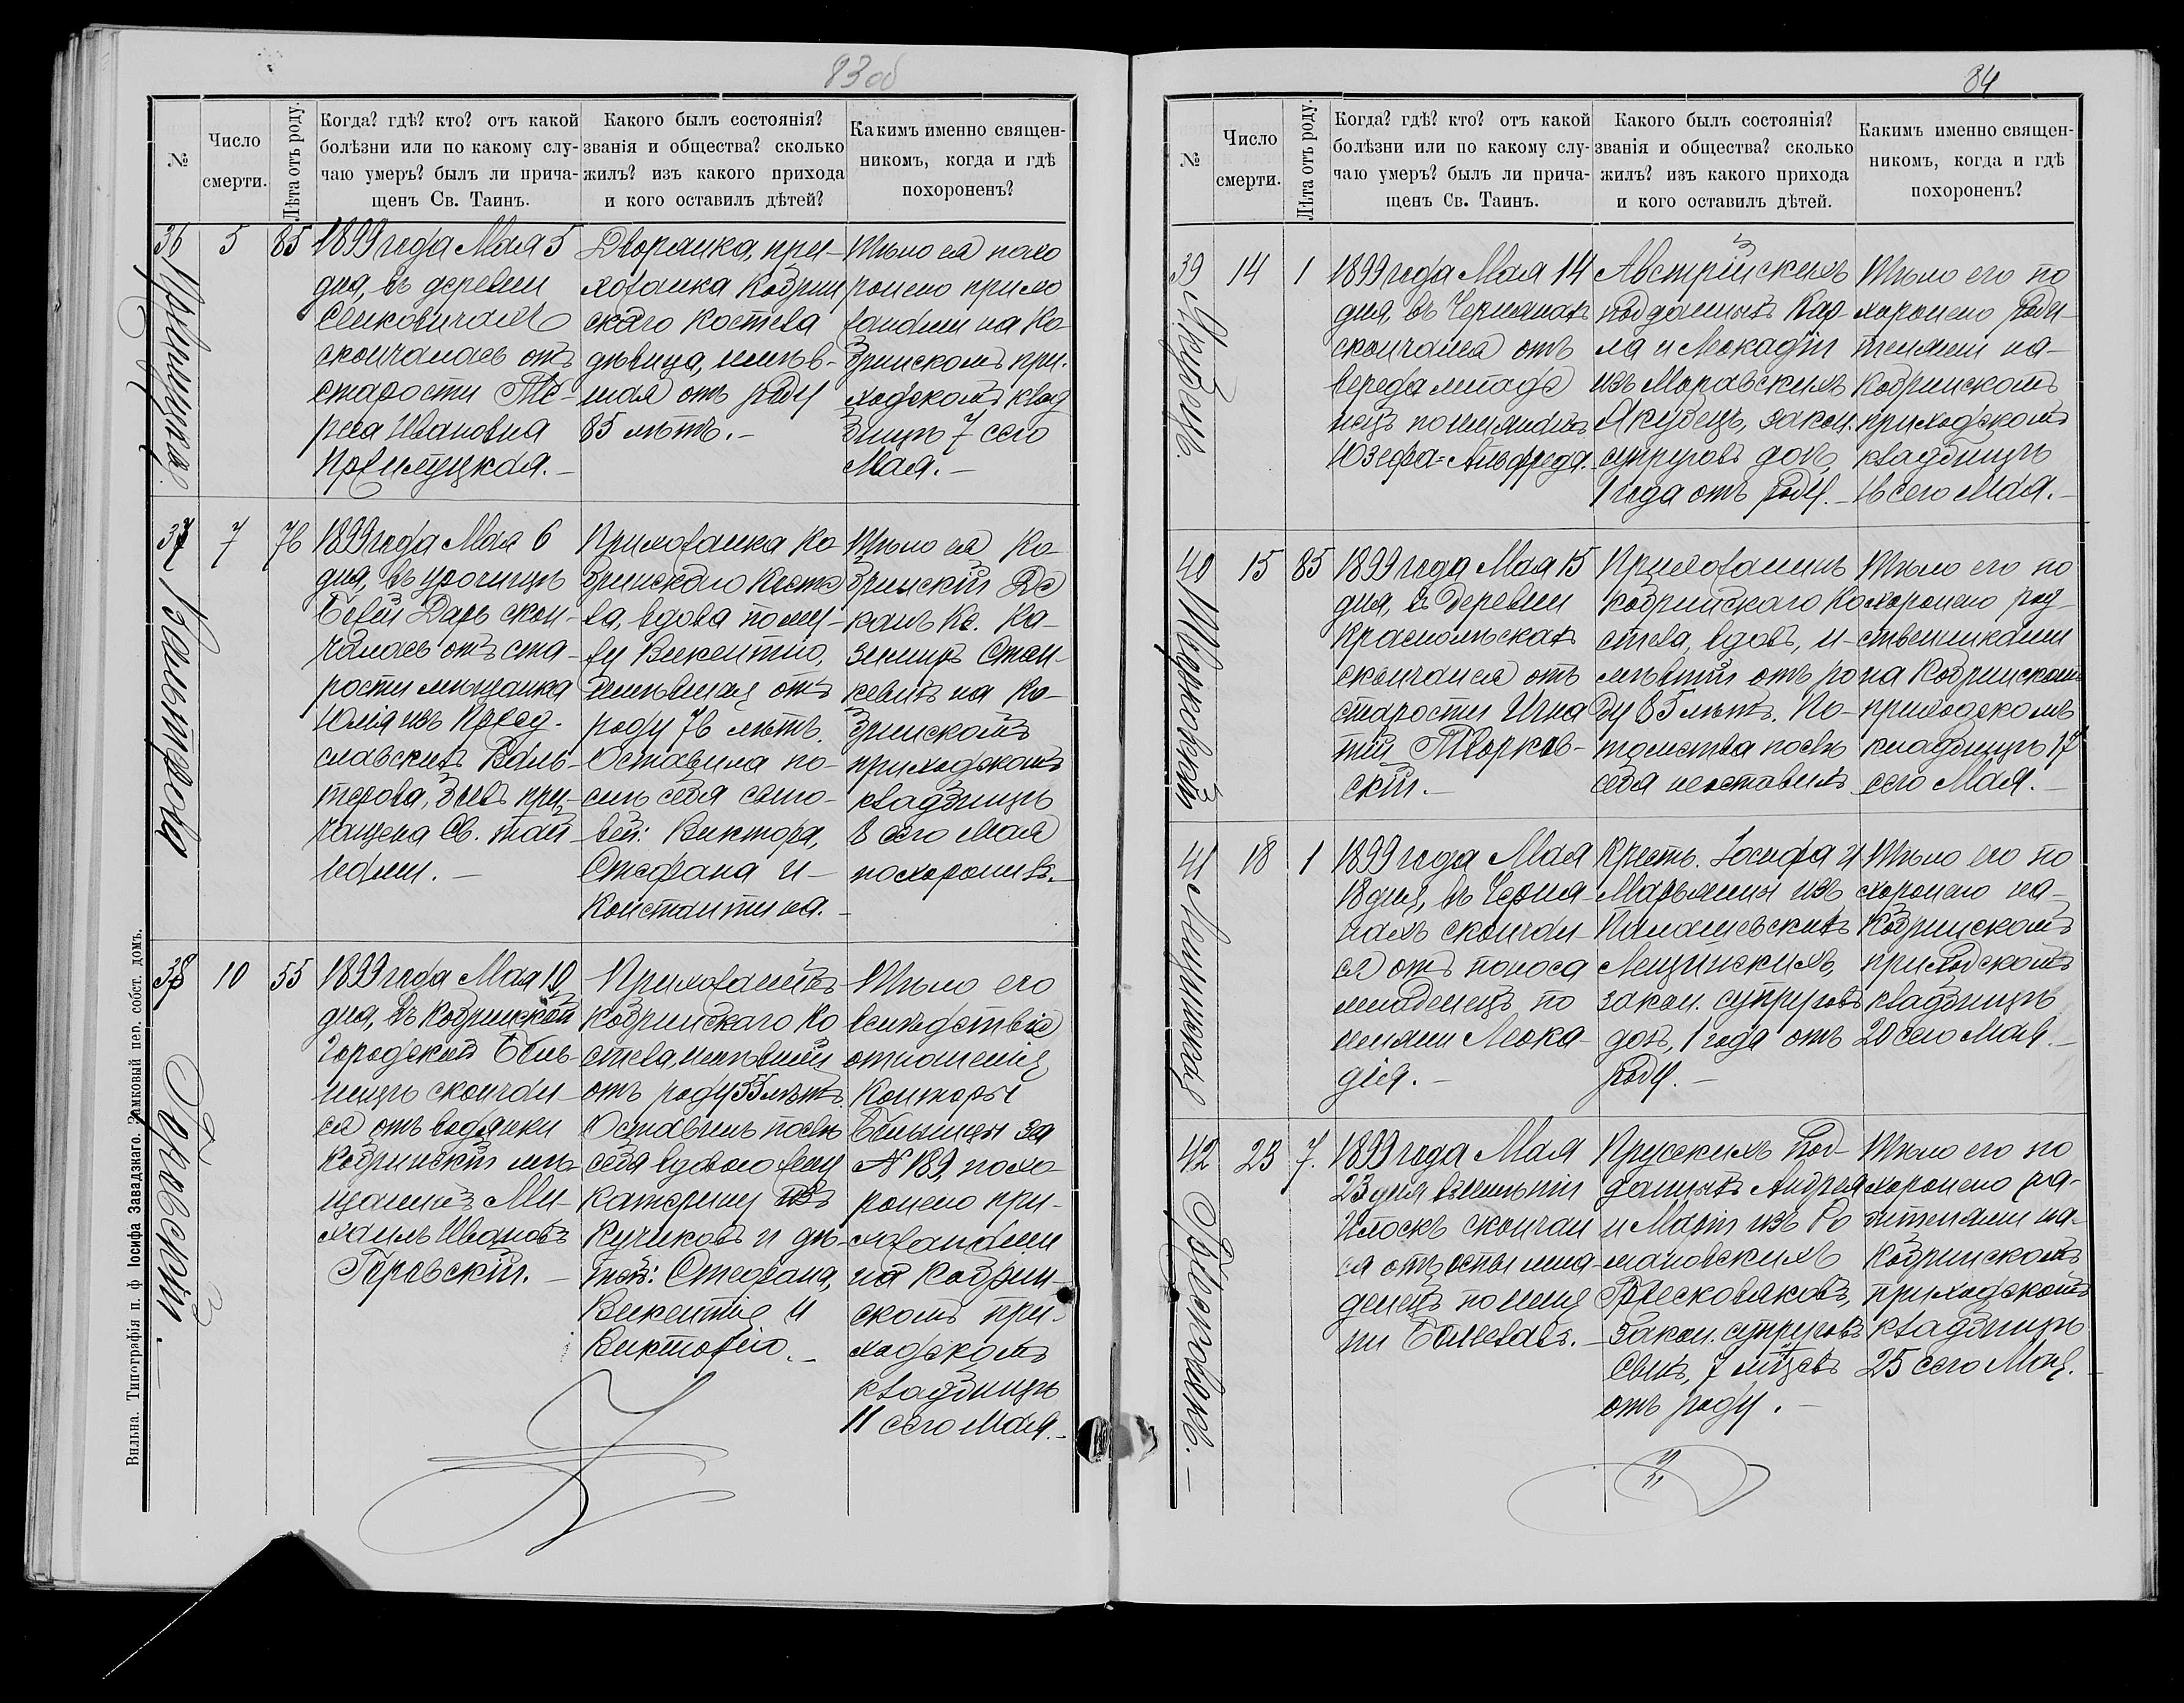 83 об
№
Число смерти.
Лѣта отъ роду.
Когда? гдѣ? кто? отъ какой
болѣзни или по какому слу-
чаю умеръ? былъ ли прича-
щенъ Св. Таинъ.
Какого былъ состоянія?
званія и общества? сколько
жилъ? изъ какого прихода
и кого оставилъ дѣтей?
Какимъ именно священ-
никомъ, когда и гдѣ
похороненъ?
36
5
85
1899 года Мая 5
дня, въ деревни
скончалась отъ
старости Те-
реса Ивановна
Дворянка, при-
хожанка Кобрин
скаго Костела
дѣвица, имѣв-
шая отъ роду
85 лѣтъ.-
Тѣло ея похо
ронено прихо
жанами на Ко
бринскомъ при-
ходскомъ клад
бищѣ 7 сего
Мая.-
37
Вальтерова
7
76
1899 года Мая 6
дня, въ урочищѣ
Божій Даръ скон-
чалась отъ ста-
рости мѣщанка
Юлія изъ
славскихъ Валь-
терова, бывъ при-
чащена Св. тай
нами.-
Прихожанка Ко
бринскаго Косте
ла, вдова по му-
жу Викентію,
имѣвшая отъ
роду 76 лѣтъ.
Оставила по-
слѣ себя сыно-
вей: Виктора,
Стефана и
Константина.-
Тѣло ея Ко-
бринскій Де
канъ Кс. Ка-
зимиръ Стан-
кевичъ на Ко-
бринскомъ
приходскомъ
кладбищѣ
8 сего Мая
похоронилъ.-
38
Горовскій.
10
55
1899 года Мая 10
дня, въ Кобринской
городской Боль-
ницѣ скончал-
ся отъ водянки
Кобринскій мѣ-
щанинъ Ми-
хаилъ Ивановъ
Горовскій.-
Прихожанинъ
Кобринскаго Ко
стела, имѣвшій
отъ роду 55 лѣтъ.
Оставилъ послѣ
себя вдовою жену
Катерину изъ
Кучиковъ и дѣ-
тей: Стефана,
Викентія и
Викторію.-
Тѣло его
вслѣдствіе
отношенія
Конторы
Больницы за
№ 189, похо
ронено при-
хожанами
на Кобрин-
скомъ при-
ходскомъ
кладбищѣ
11 сего Мая.-
Вильна. Типографія п. ф Іосифа Завадзкаго. Замковый пер. собст. домъ.
84
№
Число смерти.
Лѣта отъ роду.
Когда? гдѣ? кто? отъ какой
болѣзни или по какому слу-
чаю умеръ? былъ ли прича-
щенъ Св. Таинъ.
Какого былъ состоянія?
званія и общества? сколько
жилъ? изъ какого прихода
и кого оставилъ дѣтей.
Какимъ именно священ-
никомъ, когда и гдѣ
похороненъ?
39
Якубецъ.
14
1
1899 года Мая 14
дня, въ Чернянахъ
скончался отъ
вереда младе
нецъ по имянамъ
Юзефа-Альфреда.
Австрійскихъ
подданныхъ Кар
ла и Леокадіи
изъ Моравскихъ
Якубецъ, закон.
супруговъ дочь,
1 года отъ роду.-
Тѣло его по
хоронено роди-
телями на-
Кобринскомъ
приходскомъ
кладбищѣ
16 сего Мая.-
40
Творковскій
15
85
1899 года Мая 15
дня, въ деревни
скончался отъ
старости Игна
тій Творков-
скій.-
Прихожанинъ
Кобринскаго Ко
стела, вдовъ, и-
мѣвшій отъ ро
ду 85 лѣтъ. По-
томства послѣ
себя неоставилъ
Тѣло его по
хоронено род-
ственниками
на Кобринскомъ
приходскомъ
кладбищѣ 17
сего Мая.-
41
Лещинская
18
1
1899 года Мая
18 дня, въ Черня-
нахъ скончал-
ся отъ поноса
младенецъ по
имяни Леока-
дія.-
Крестъ. Іосифа и
Марьянны изъ
Паламевскихъ
Лещинскихъ,
закон. супруговъ
дочь, 1 года отъ
роду.-
Тѣло его по
хоронено на-
Кобринскомъ
приходскомъ
кладбищѣ
20 сего Мая.-
42
23
7.
1899 года Мая
23 дня въ имѣніи
Илоскѣ скончал
ся отъ оспы мла-
денецъ по имя
ни Болеславъ.-
Прусскихъ под-
данныхъ Андрея
и Маріи изъ Ро
мановскихъ
закон. супруговъ
сынъ, 7 мѣсцевъ
отъ роду.-
Тѣло его по
хоронено ро-
дителями на-
Кобринскомъ
приходскомъ
кладбищѣ
25 сего Мая.-